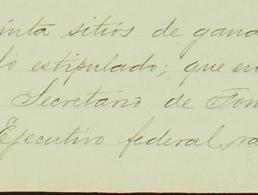 inta sitios de gana
lo estipulado; que en
Secretario de Fom
Ejecutivo federal ra